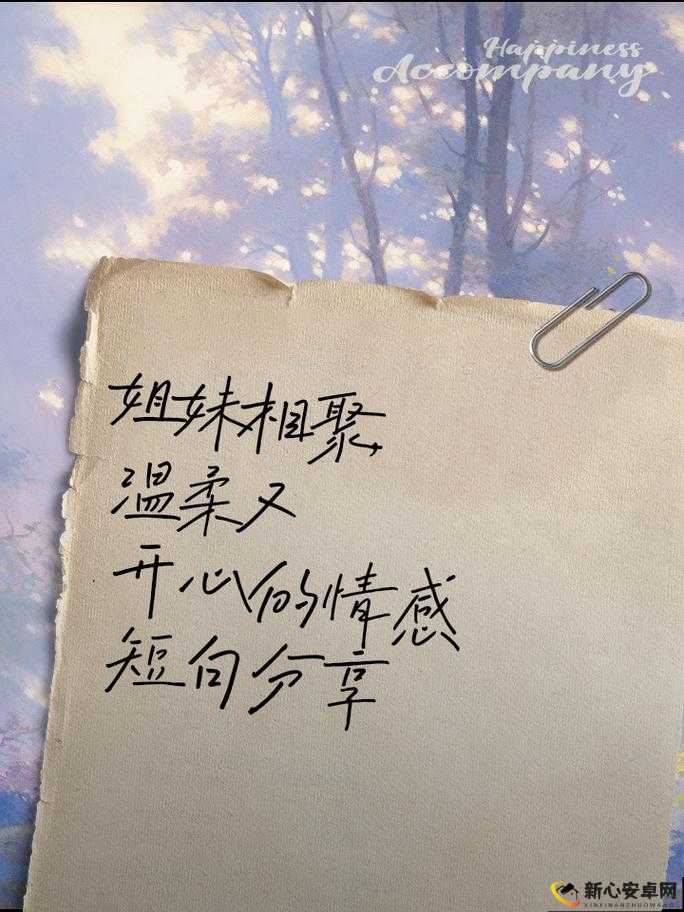 Happiness
Accompany
姐妹相聚,
温柔又
开心的情感
短句分享
新心安卓网
XINXINANZHUOWANG